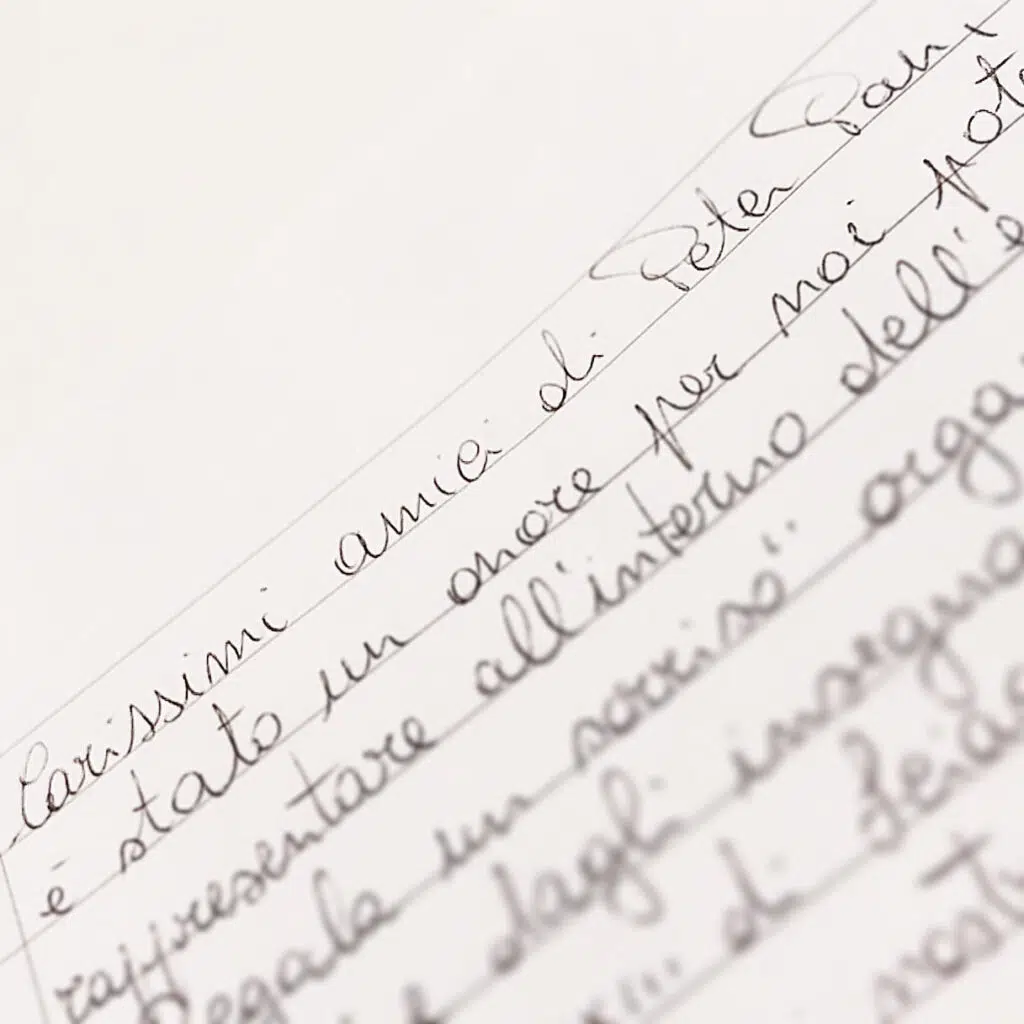 Carissimi amici di Peter Pan,
è stato un onore per noi
rappresentare all'interno dell'
Regala un sorriso" 
dagli
di